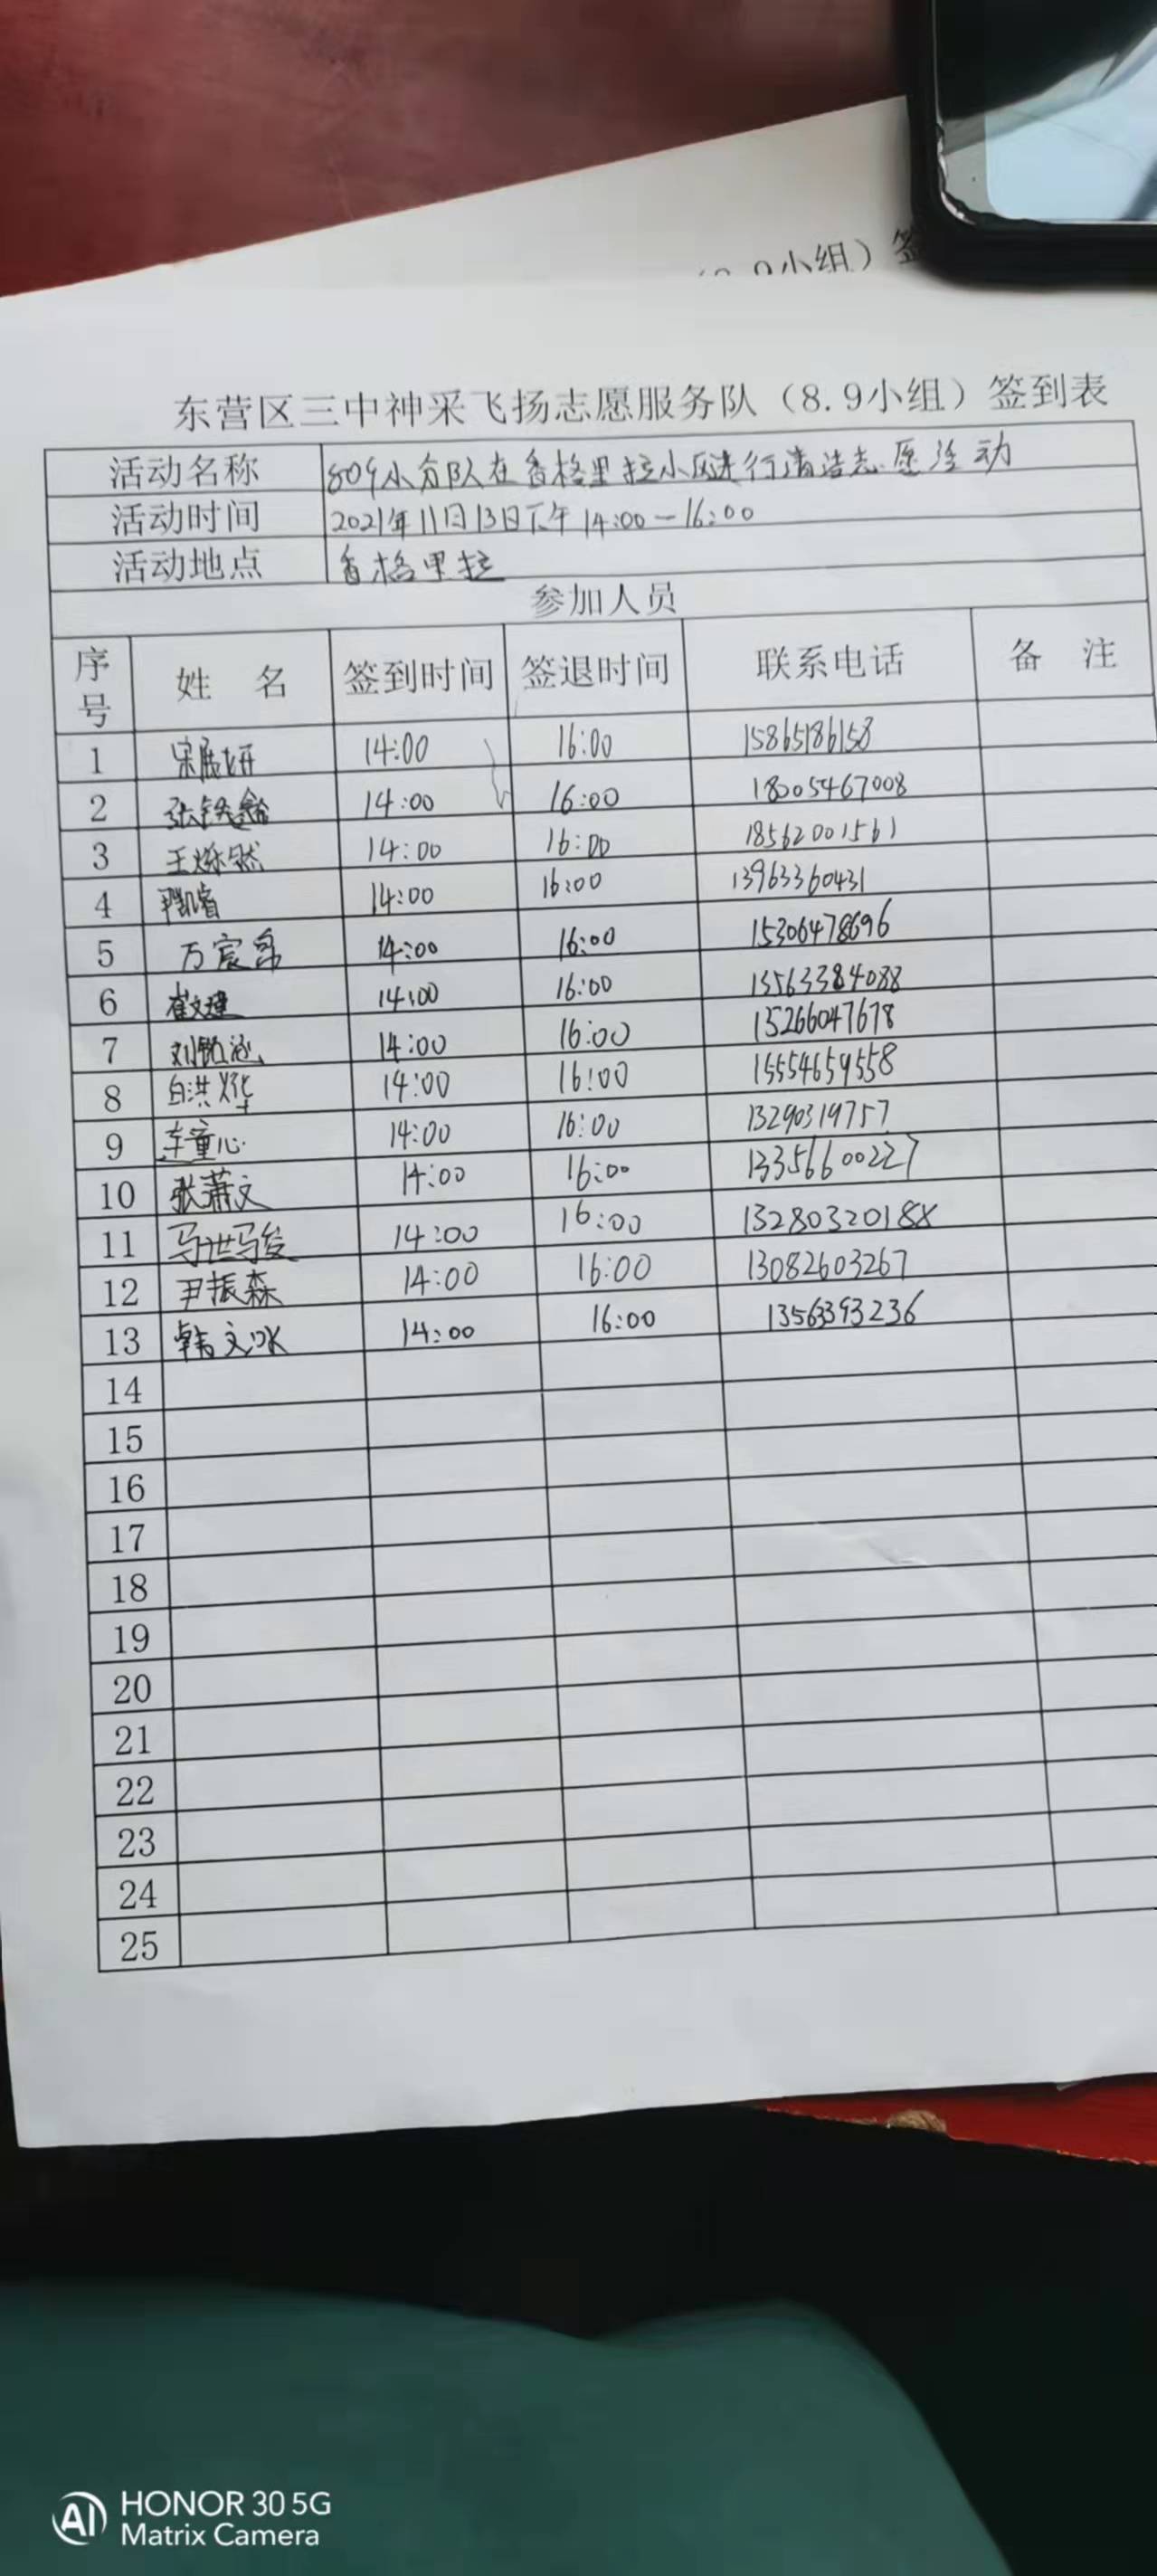 8.9小组）签
东营区三中神采飞扬志愿服务队（8.9小组）签到表
活动名称 809小分队在香格里拉小区进行清洁志愿活动
活动时间 2021年11月13日下午14:00—16:00
活动地点 香格里拉
参加人员
序号 姓 名 签到时间 签退时间 联系电话 备 注
1 宋展妍 14:00 16:00 15865186158
2 张 14:00 16:00 18005467008
3 王烁然 14:00 16:00 18562001561
4 14:00 16:00 13963360431
5 万宸 14:00 16:00 15306478696
6 崔文建 14:00 16:00 15563384088
7 刘铭涵 14:00 16:00 15266047678
8 白洪烨 14:00 16:00 15554659558
9 连童心 14:00 16:00 13290319757
10 张萧文 14:00 16:00 13356600227
11 马世骏 14:00 16:00 13280320188
12 尹振森 14:00 16:00 13082603267
13 韩文 14:00 16:00 13563393236
14
15
16
17
18
19
20
21
22
23
24
25
AI HONOR 30 5G
Matrix Camera